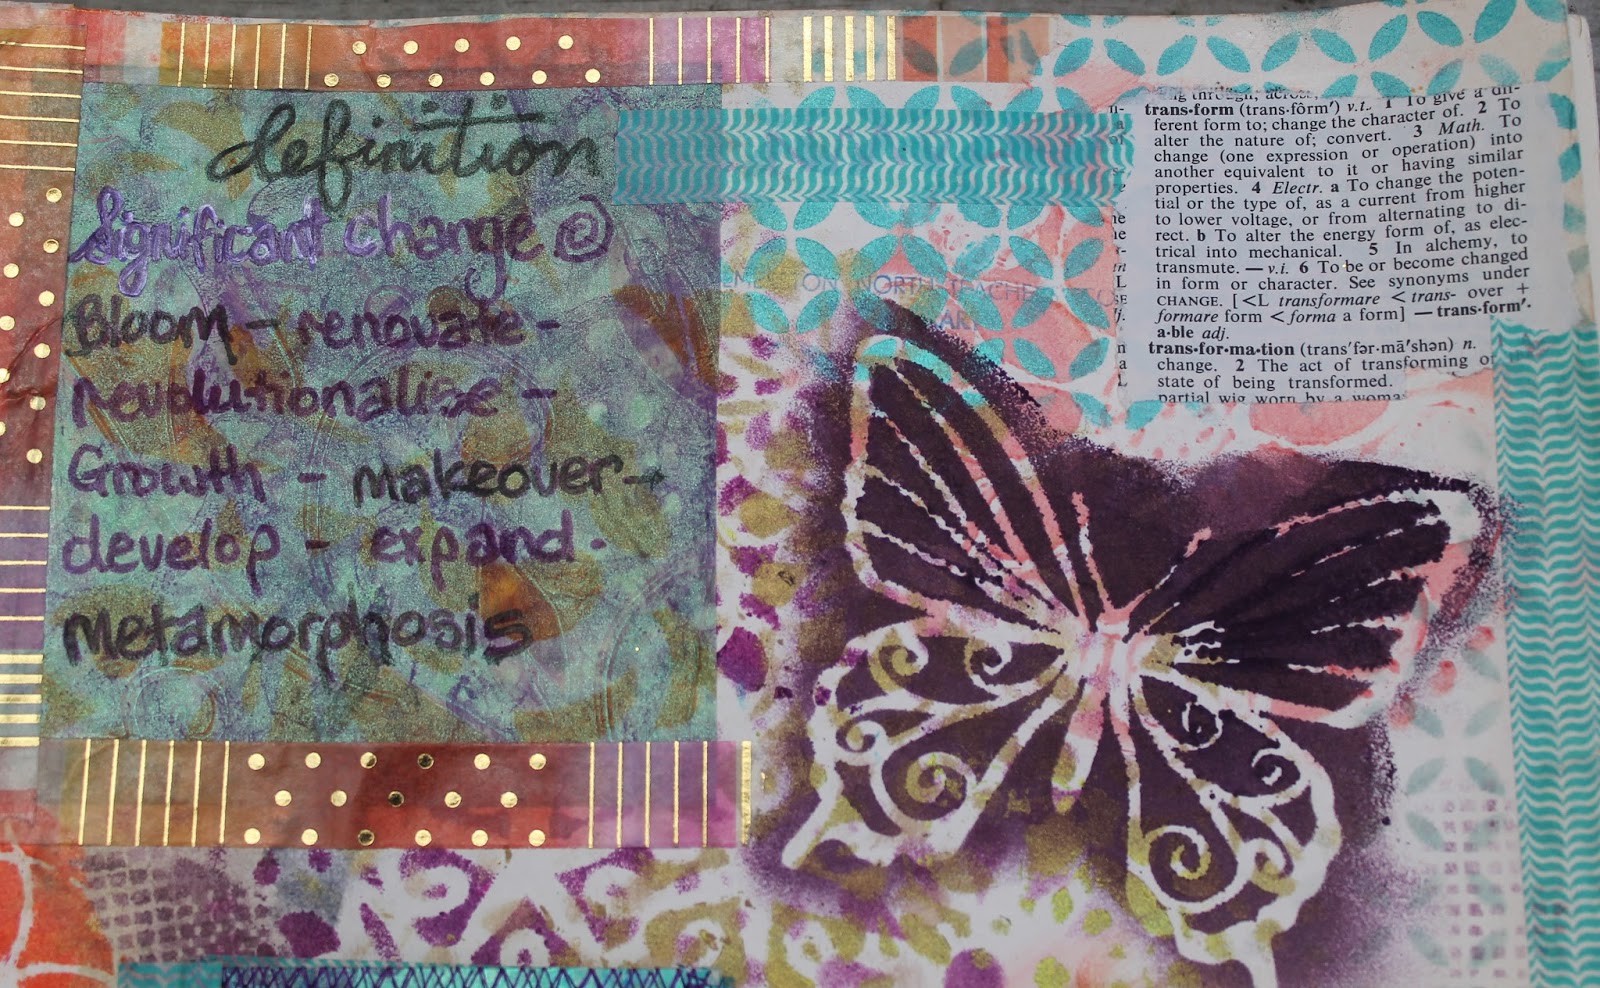 definition
Significant change
Bloom - renovate -
revolutionalise -
Growth - makeover -
develop - expand -
metamorphosis
NORTH TEACHE
ing through, across,
trans·form (trans·fôrm′) v.t. 1 To give a dif-
ferent form to; change the character of. 2 To
alter the nature of; convert. 3 Math. To
change (one expression or operation) into
another equivalent to it or having similar
properties. 4 Electr. a To change the poten-
tial or the type of, as a current from higher
to lower voltage, or from alternating to di-
rect. b To alter the energy form of, as elec-
trical into mechanical. 5 In alchemy, to
transmute. — v.i. 6 To be or become changed
in form or character. See synonyms under
CHANGE. [<L transformare < trans- over +
formare form < forma a form] — trans·form′·
a·ble adj.
trans·for·ma·tion (trans′fər·mā′shən) n.
change. 2 The act of transforming or
state of being transformed.
partial wig worn by a woma